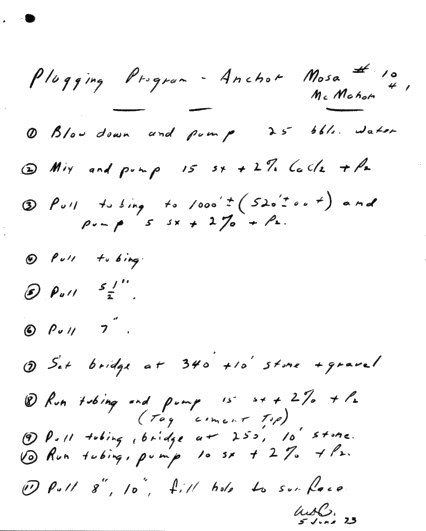 Plugging Program - Anchor Mosa # 10
Mc Mahon # 1
① Blow down and pump 25 bbls. water
② Mix and pump 15 sx + 2% CaCl2 + P2
③ Pull tubing to 1000'± (520'± out) and
pump 5 sx + 2% + P2.
④ Pull tubing.
⑤ Pull 5 1/2".
⑥ Pull 7".
⑦ Set bridge at 340' +10' stone + gravel
⑧ Run tubing and pump 15 sx + 2% + P2
(Tag cement Top)
⑨ Pull tubing, bridge at 250', 10' stone.
⑩ Run tubing, pump 10 sx + 2% + P2.
⑪ Pull 8", 10", fill hole to surface
5 June 23